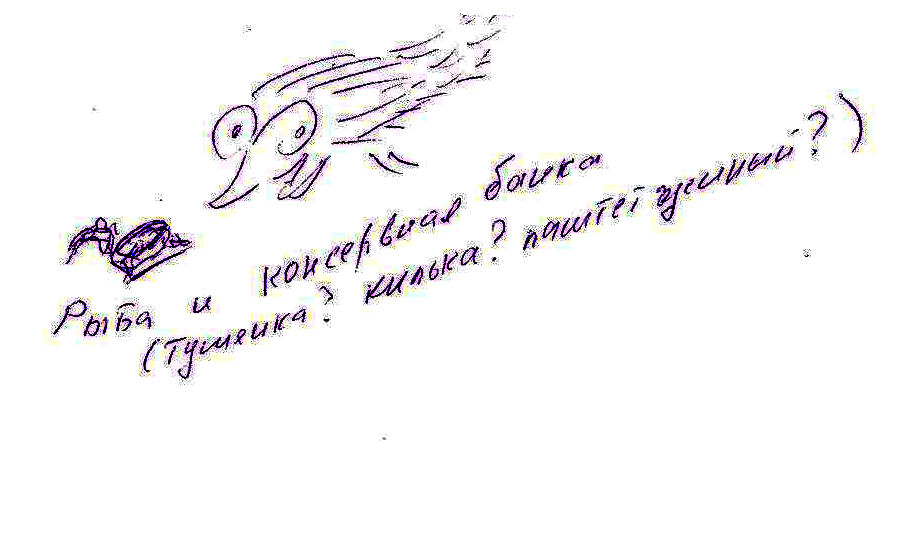 Рыба и консервная банка
(Тушенка? килька? паштет гусиный?)